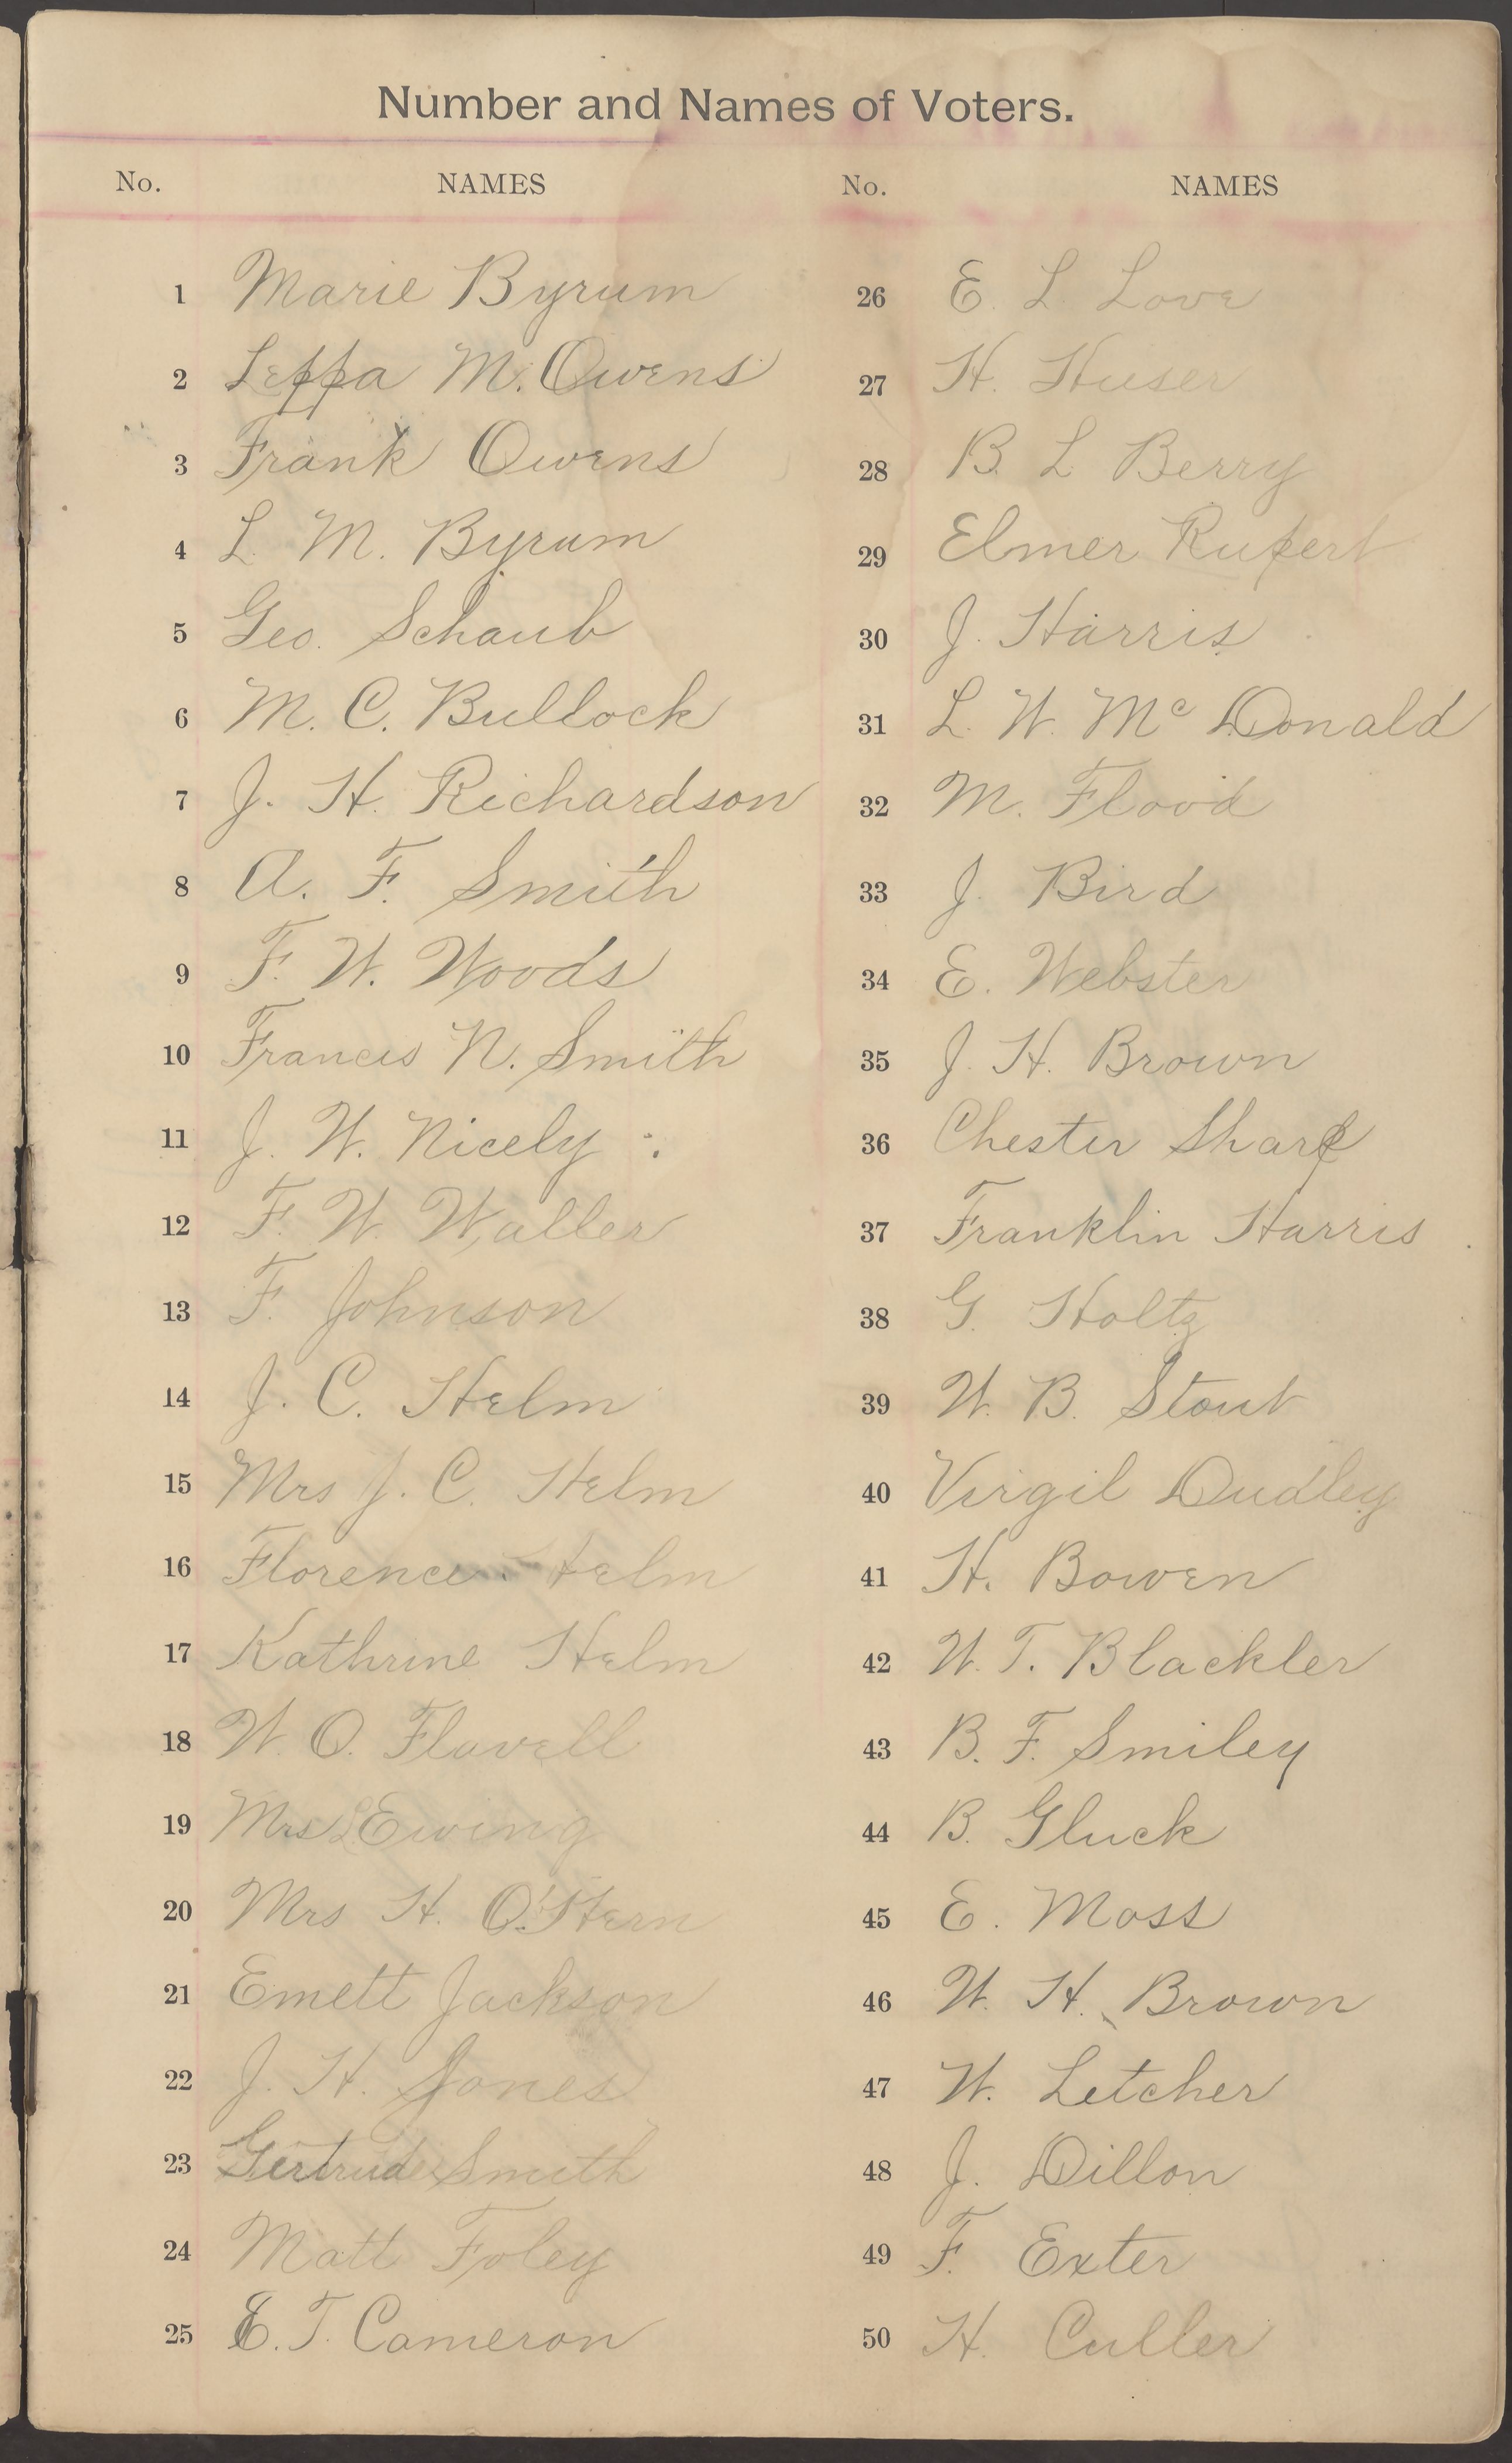 Number and Names of Voters.
No. NAMES
1 Marie Byrum
2 Leppa M. Owens
3 Frank Owens
4 L. M. Byrum
5 Geo. Schaub
6 M. C. Bullock
7 J. H. Richardson
8 A. F. Smith
9 F. W. Woods
10 Francis N. Smith
11 J. W. Nicely
12 F. W. Waller
13 F. Johnson
14 J. C. Helm
15 Mrs J. C. Helm
16 Florence Helm
17 Kathrine Helm
18 W. O. Flavell
19 Mrs Ewing
20 Mrs H. O'Hern
21 Emett Jackson
22 J. H. Jones
23 Gertrude Smith
24 Matt Foley
25 E. T. Cameron
No. NAMES
26 E. L. Love
27 H. Huser
28 B. L Berry
29 Elmer Rupert
30 J. Harris
31 L. W. Mc Donald
32 M. Flood
33 J. Bird
34 E. Webster
35 J. H. Brown
36 Chester Sharp
37 Franklin Harris
38 G. Holtz
39 W. B. Stout
40 Virgil Dudley
41 H. Bowen
42 W. T. Blackler
43 B. F. Smiley
44 B. Gluck
45 E. Moss
46 W. H. Brown
47 W. Letcher
48 J. Dillon
49 F. Exter
50 H. Culler